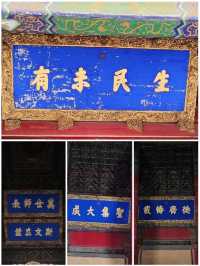 有未民生
長師世萬
兹在文斯
成大集聖
載幬齊德